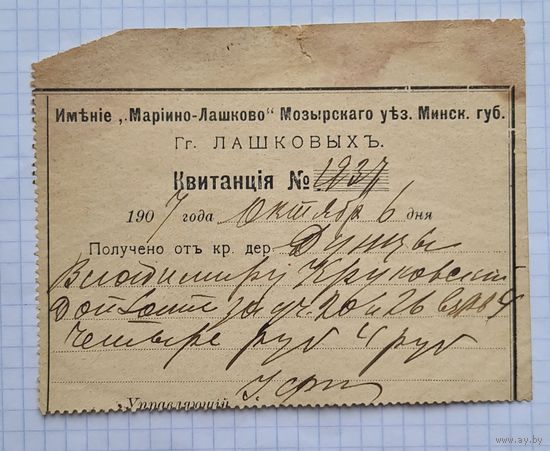 Имѣніе „Маріино-Лашково" Мозырскаго уѣз. Минск. губ.
Гг. ЛАШКОВЫХЪ.
Квитанція № 1937
1907 года Октября 6 дня
Получено отъ кр. дер.
Владимира Круковский
за уч 20 и 26
Четыре руб 4 руб
Управляющій
www.ay.by